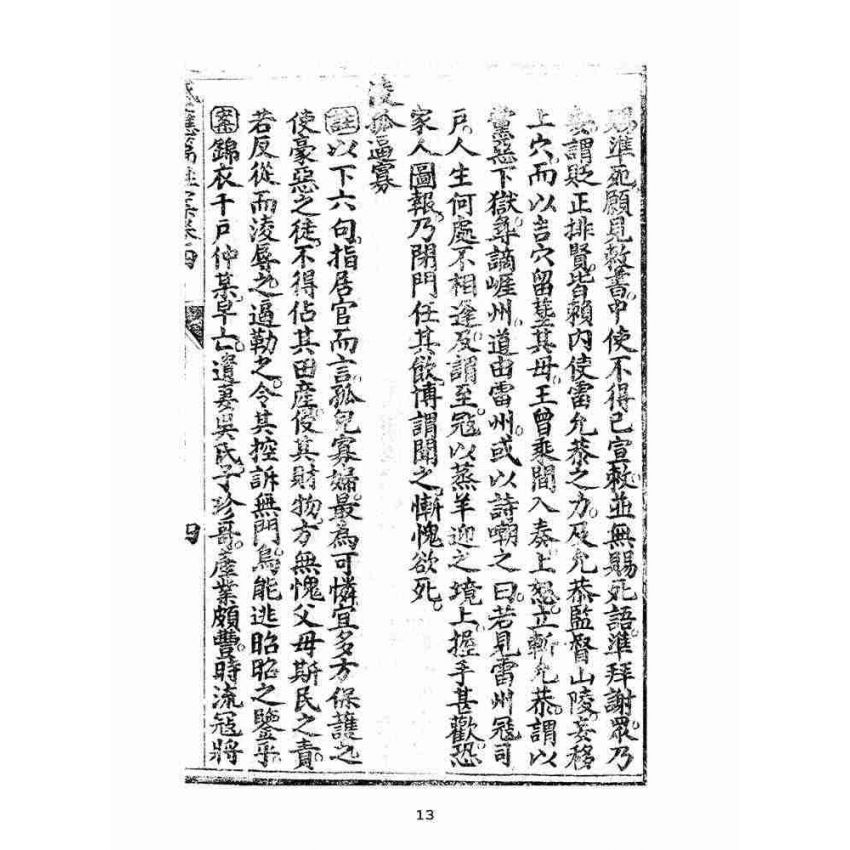 賜準死願見敕書中使不得已宣敕並無賜死語準拜謝眾乃
安謂貶正排賢皆賴內使雷允恭之力及允恭監督山陵妄移
上穴而以吉穴留塟其母王曾乘間入奏上怒立斬允恭謂以
黨惡下獄尋謫崖州道由雷州或以詩嘲之曰若見雷州寇司
戶人生何處不相逢及謂至寇以蒸羊迎之境上握手甚歡恐
家人圖報乃閉門任其飲博謂聞之慚愧欲死
淩孤逼寡
註以下六句指居官而言孤兒寡婦最為可憐宜多方保護之
使豪惡之徒不得佔其田產侵其財物方無愧父母斯民之責
若反從而淩辱之逼勒之令其控訴無門烏能逃昭昭之鑒乎
案錦衣千戶仲某早亡遺妻吳氏子珍哥產業頗豐時流寇將
感應篇註案卷四
四
13